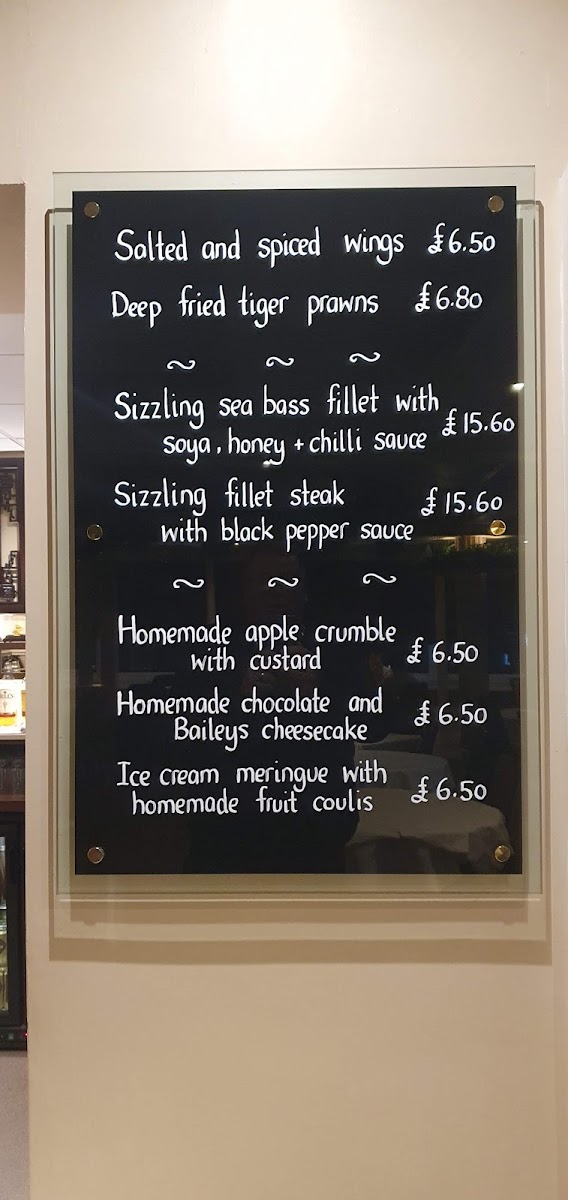 Salted and spiced wings £6.50
Deep fried tiger prawns £6.80
~ ~ ~
Sizzling sea bass fillet with
soya, honey + chilli sauce £15.60
Sizzling fillet steak £15.60
with black pepper sauce
~ ~ ~
Homemade apple crumble
with custard £6.50
Homemade chocolate and
Baileys cheesecake £6.50
Ice cream meringue with
homemade fruit coulis £6.50